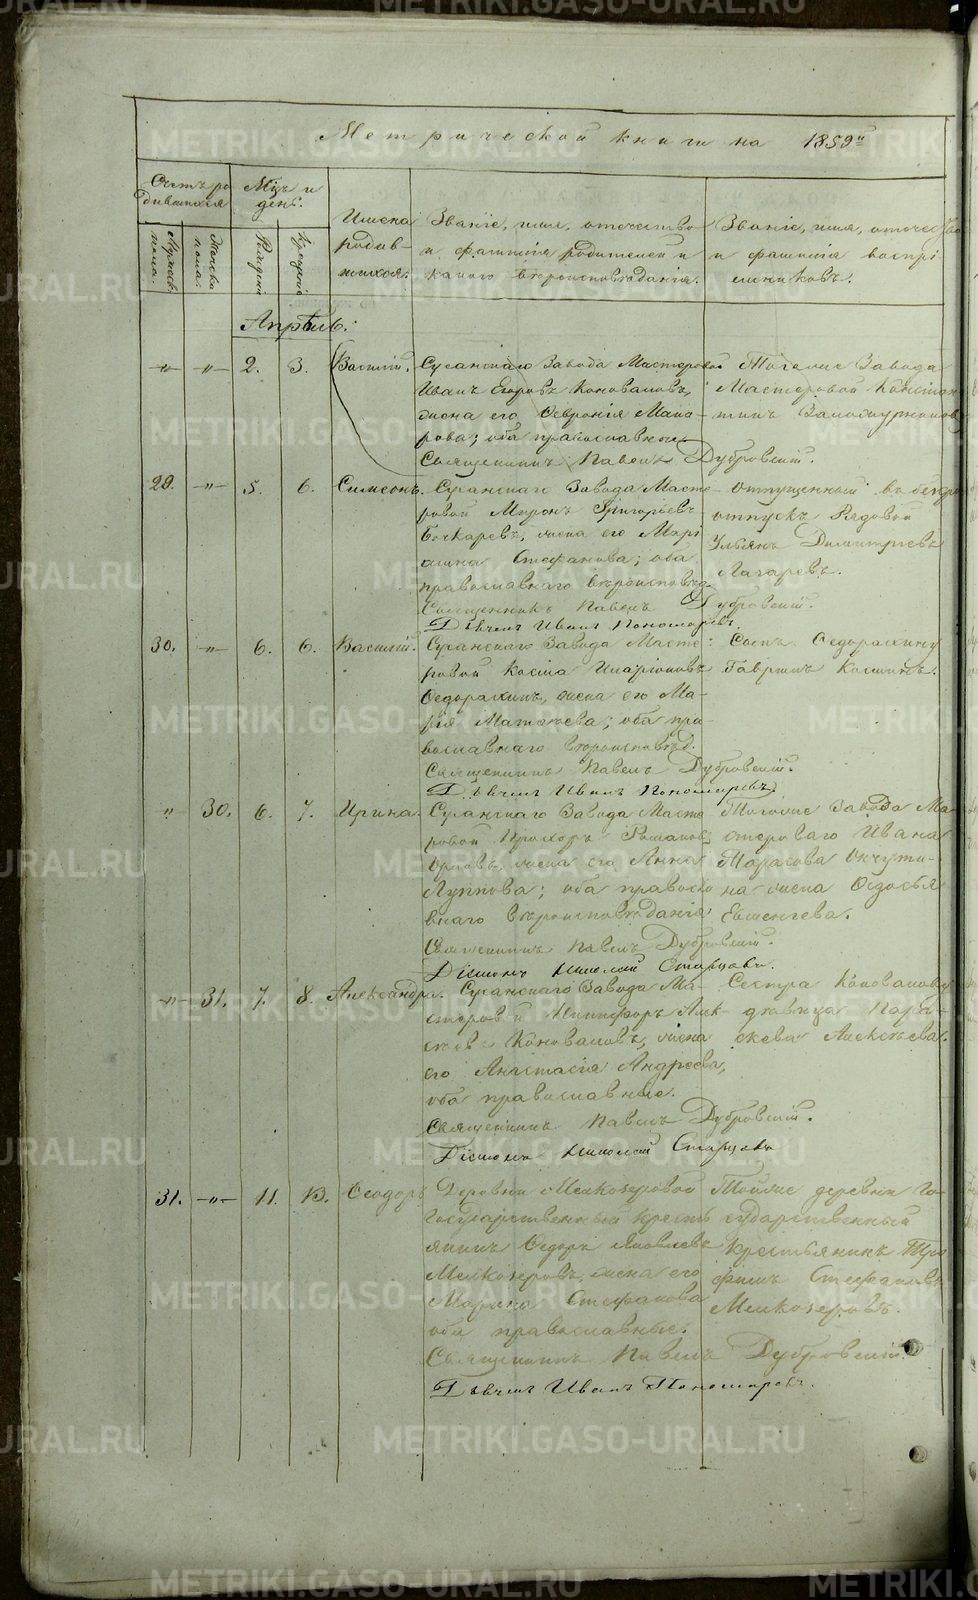 Метрической книги на 1859й
Счетъ родившихся
Мужеска пола.
Женска пола.
Мѣс. и день.
Рожденія
Крещенія
Имена родившихся.
Званіе, имя, отечество
и фамилія родителей и
какого вѣроисповѣданія.
Званіе, имя, отечество
и фамилія воспріемниковъ.
Апрѣль.
" " 2. 3. Василій.
Сусанскаго Завода Мастеровой
Иванъ Егоровъ Коноваловъ,
жена его Февронія Макарова; оба православные
Тогоже Завода
Мастеровой Константинъ
Священникъ Павелъ Дубровскій.
29. " 5. 6. Симеонъ.
Сусанскаго Завода Мастеровой Миронъ Григорьевъ
Бочкаревъ, жена его Марі
Стефанова; оба
православнаго вѣроисповѣд.
Отпущенный въ
отпускъ Рядовой
Ульянъ Димитріевъ
Лагаревъ.
Священникъ Павелъ Дубровскій.
Дьячекъ Иванъ Пономаревъ.
30. " 6. 6. Василій.
Сусанскаго Завода Мастеровой Косма Иларіоновъ
Федорахинъ, жена его Марія Матѳеева; оба православнаго вѣроисповѣд.
Сынъ Федорахину
Гавріилъ Косминъ.
Священникъ Павелъ Дубровскій.
Дьячекъ Иванъ Пономаревъ.
" 30. 6. 7. Ирина.
Сусанскаго Завода Мастеровой Прохоръ Романовъ
Орловъ, жена его Анна
Луппова; оба православнаго вѣроисповѣданія
Тогоже Завода Мастероваго Ивана
Тарасова
жена Ѳедосья
Евгеніева.
Священникъ Павелъ Дубровскій.
Діаконъ Николай Старцевъ.
" 31. 7. 8. Александра.
Сусанскаго Завода Мастеровой Никифоръ Алексѣевъ Коноваловъ, жена
его Анастасія Андреева,
оба православные.
Сестра Коновалову
дѣвица Параскева Алексѣева.
Священникъ Павелъ Дубровскій.
Діаконъ Николай Старцевъ
31. " 11. 13. Ѳеодоръ
Деревни Мелкозеровой
Государственный крестьянинъ Федоръ Яковлевъ
Мелкозеровъ, жена его
Марина Стефанова
оба православные.
Тойже деревни Государственный
Крестьянинъ Трофимъ Стефановъ
Мелкозеровъ.
Священникъ Павелъ Дубровскій.
Дьячекъ Иванъ Пономаревъ.
METRIKI.GASO-URAL.RU